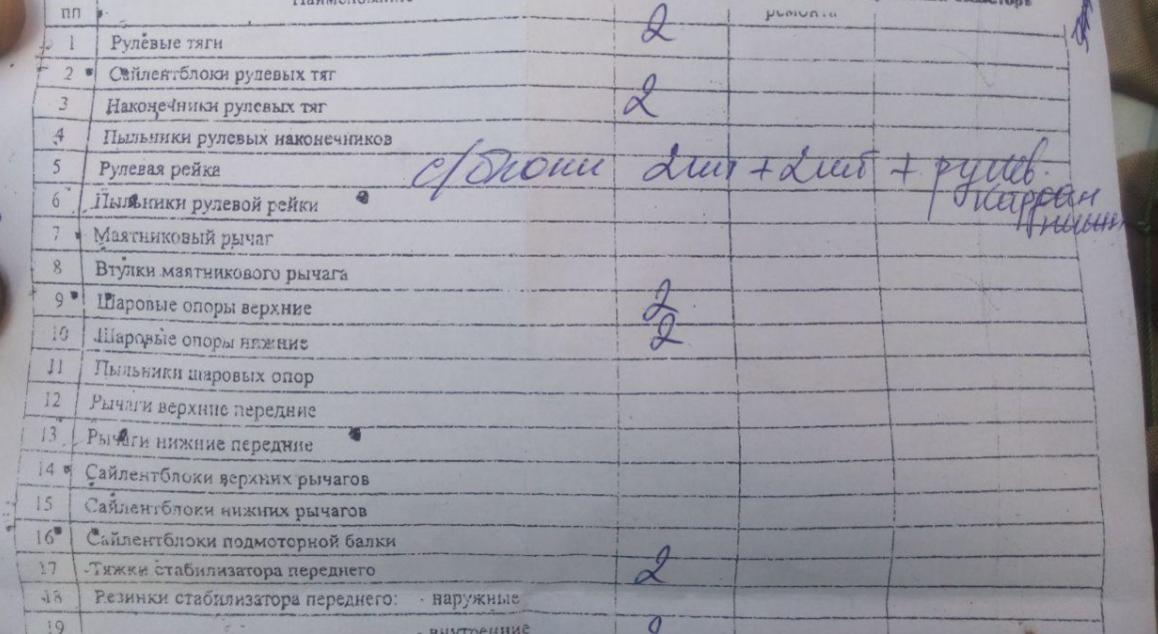 пп Наименование ремонта
1 Рулевые тяги 2
2 Сайлентблоки рулевых тяг
3 Наконечники рулевых тяг 2
4 Пыльники рулевых наконечников
5 Рулевая рейка с/блоки 2шт + 2шт + рулев.
кардан
6 Пыльники рулевой рейки
7 Маятниковый рычаг
8 Втулки маятникового рычага
9 Шаровые опоры верхние 2
10 Шаровые опоры нижние 2
11 Пыльники шаровых опор
12 Рычаги верхние передние
13 Рычаги нижние передние
14 Сайлентблоки верхних рычагов
15 Сайлентблоки нижних рычагов
16 Сайлентблоки подмоторной балки
17 Тяжки стабилизатора переднего 2
18 Резинки стабилизатора переднего: - наружные
19 - внутренние 2